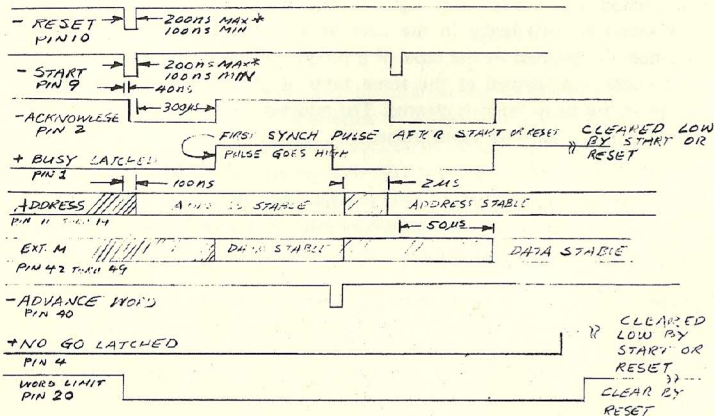 - RESET
PIN 10
200ns MAX*
100ns MIN
- START
PIN 9
200ns MAX*
100ns MIN
40ns
-ACKNOWLEGE
PIN 2
300µs
FIRST SYNCH PULSE AFTER START OR RESET
PULSE GOES HIGH
CLEARED LOW
BY START OR
RESET
+ BUSY LATCHED
PIN 1
100ns
2µs
ADDRESS
STABLE
ADDRESS STABLE
PIN 11
50µs
EXT. M
DATA STABLE
DATA STABLE
PIN 42 THRU 49
-ADVANCE WORD
PIN 40
+NO GO LATCHED
PIN 4
CLEARED
LOW BY
START OR
RESET
WORD LIMIT
PIN 20
CLEAR BY
RESET